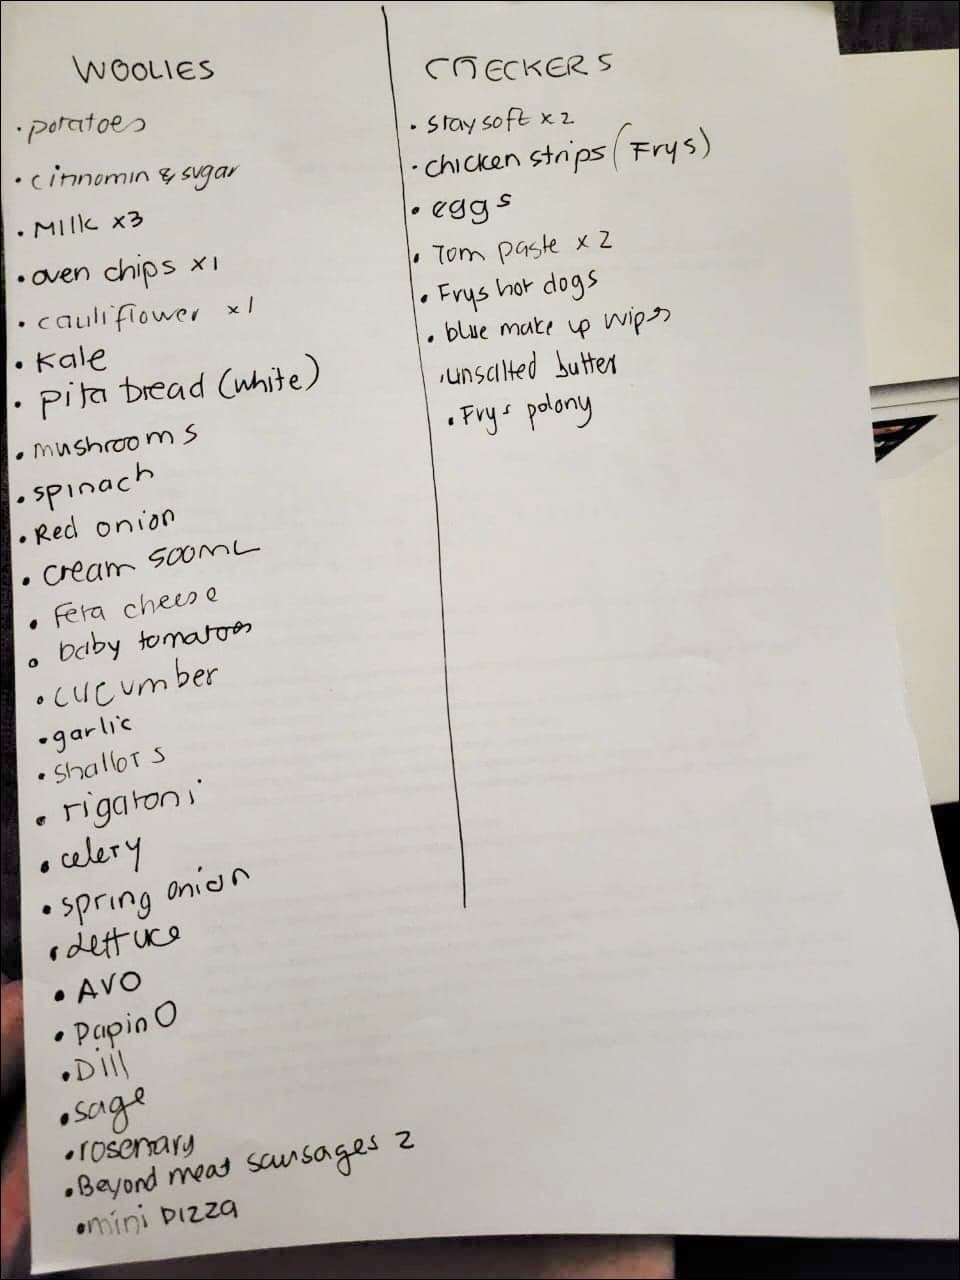 WOOLIES
• potatoes
• cinnomin & sugar
• Milk x3
• oven chips x1
• cauliflower x1
• Kale
• pita bread (white)
• mushrooms
• spinach
• Red onion
• cream 500ML
• Feta cheese
• baby tomatoes
• cucumber
• garlic
• shallots
• rigatoni
• celery
• spring onion
• Lettuce
• AVO
• Papino
• Dill
• sage
• rosemary
• Beyond meat sausages 2
• mini pizza
CHECKERS
• stay soft x 2
• chicken strips (Frys)
• eggs
• Tom paste x 2
• Frys hot dogs
• blue make up wipes
• unsalted butter
• Frys polony